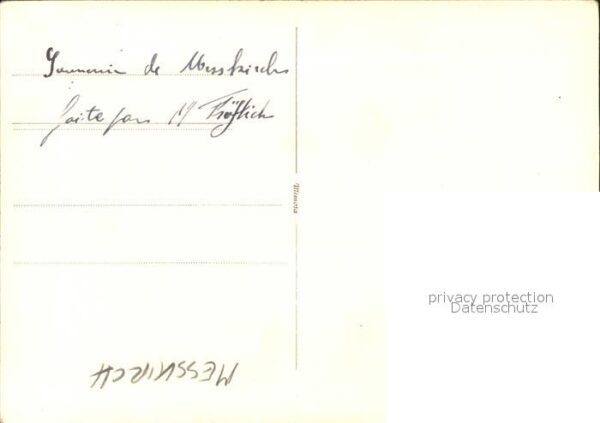 Souvenir de Messkirch
faite par M Fröhlich
Mimosa
privacy protection
Datenschutz
MESSKIRCH